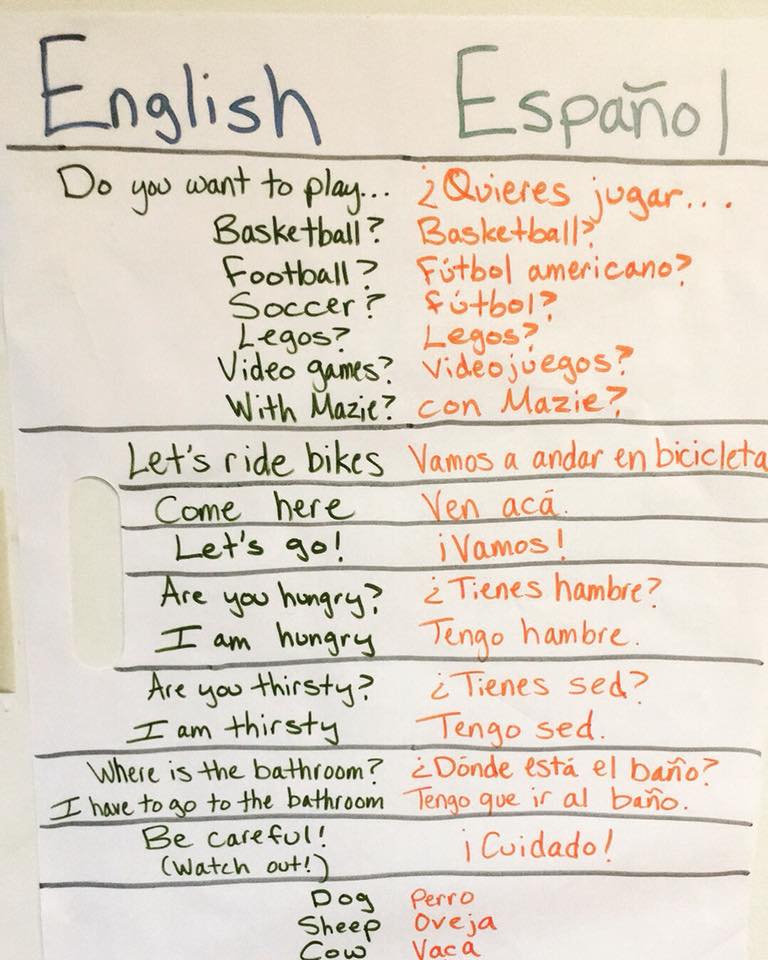 English Español
Do you want to play... ¿Quieres jugar...
Basketball? Basketball?
Football? Fútbol americano?
Soccer? Fútbol?
Legos? Legos?
Video games? Videojúegos?
With Mazie? con Mazie?
Let's ride bikes Vamos a andar en bicicleta
Come here Ven acá.
Let's go! ¡Vamos!
Are you hungry? ¿Tienes hambre?
I am hungry Tengo hambre.
Are you thirsty? ¿Tienes sed?
I am thirsty Tengo sed.
Where is the bathroom? ¿Dónde está el baño?
I have to go to the bathroom Tengo que ir al baño.
Be careful! ¡Cuidado!
(Watch out!)
Dog Perro
Sheep Oveja
Cow Vaca